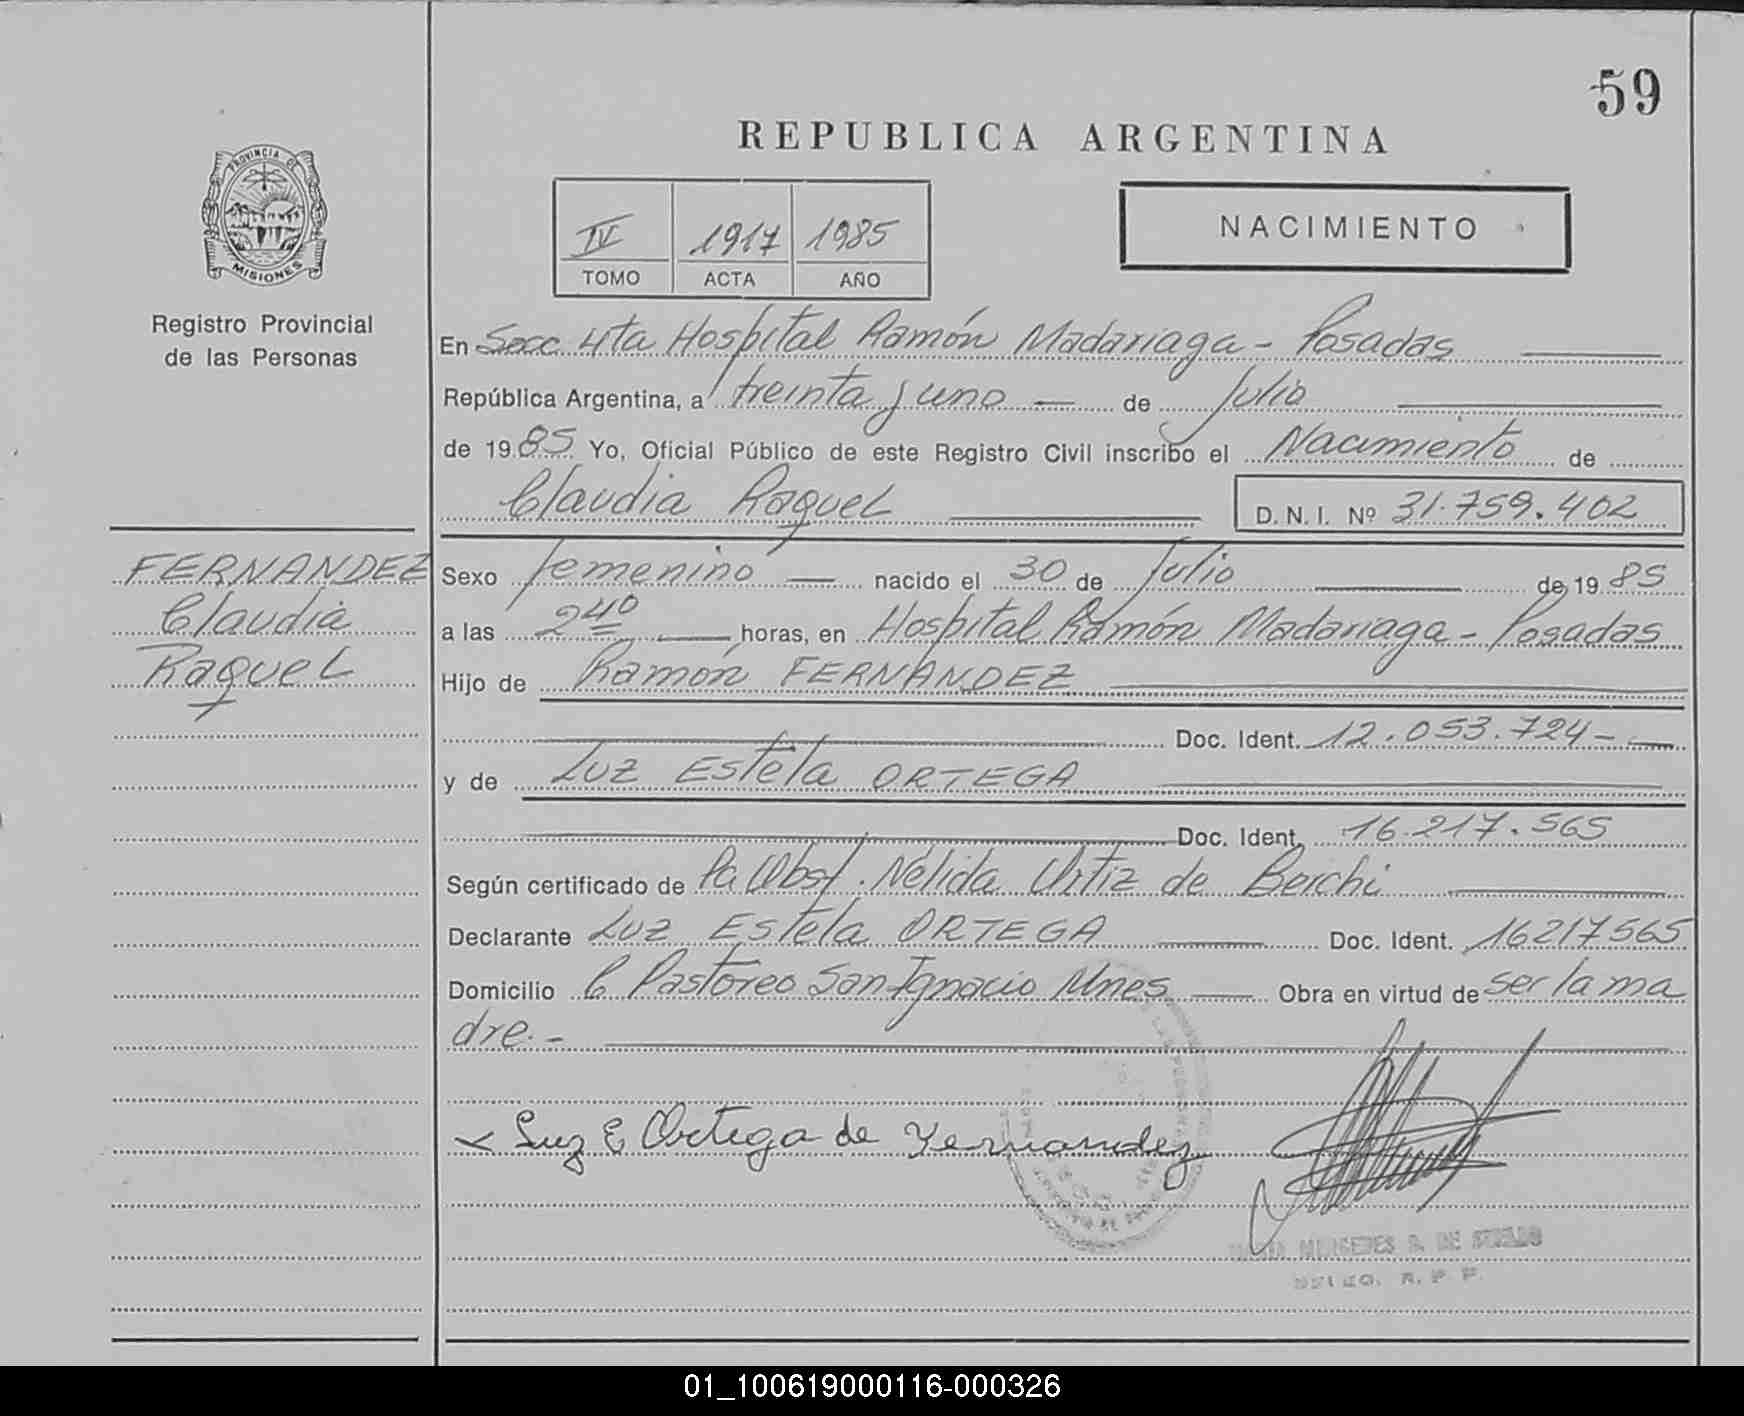 59
REPUBLICA ARGENTINA
PROVINCIA DE
MISIONES
IV 1917 1985
TOMO ACTA AÑO
NACIMIENTO
Registro Provincial
de las Personas
En Secc 4ta Hospital Ramón Madariaga - Posadas
República Argentina, a treinta y uno — de Julio
de 1985 Yo, Oficial Público de este Registro Civil inscribo el Nacimiento de
Claudia Raquel
D. N. I. Nº 31.759.402
FERNANDEZ
Claudia
Raquel
Sexo femenino — nacido el 30 de Julio de 1985
a las horas, en Hospital Ramón Madariaga - Posadas
Hijo de Ramón FERNANDEZ
Doc. Ident. 12.053.724 -
y de Luz Estela ORTEGA
Doc. Ident. 16.217.565
Según certificado de Pa Obst. Nélida Ortiz de Berchi
Declarante Luz Estela ORTEGA Doc. Ident. 16217565
Domicilio C Pastoreo San Ignacio Mnes Obra en virtud de ser la ma
dre. -
Luz E Ortega de Fernandez
MERCEDES DE
R. P. P.
01_100619000116-000326